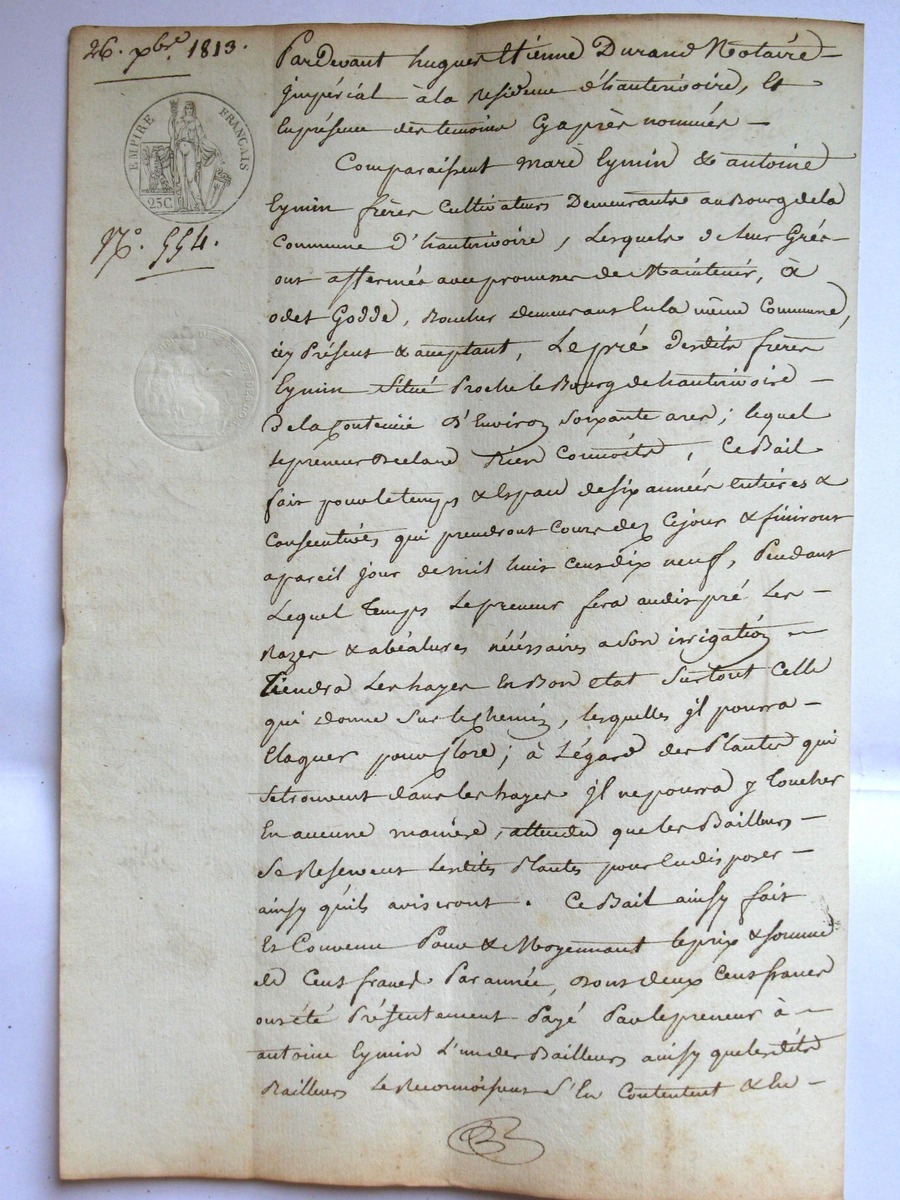 26. xbre. 1813.
EMPIRE FRANÇAIS
25 C.
N°. 554.
Pardevant hugues Etienne Durand Notaire
jmpérial à la Residence d'hauterivoire, Et
En présence des temoins Cyaprès nommés
Comparaissent Marc Eymin & antoine
Eymin frères Cultivateurs Demeurants au Bourg de la
Commune d'hauterivoire, Lesquels de leur Grés
ont affermés avec promesses de Maintenir, à
odet Godde, Boucher demeurant En la même Commune,
icy Présent & acceptant, Le pré desdits frères
Eymin Situé Proche le Bourg de hauterivoire
De la Contenüe D'Environ Soixante ares; lequel
Le preneur declare Bien Connoitre, Ce Bail
fait pour le temps & Espace de six années Entières &
Consecutives qui prendront Cours dez Cejour & finiront
apareil jour de mil huit cent dix neuf, Pendant
Lequel Temps Le preneur fera audit pré Les
Razes & abéalures nécéssaires a son irrigation
Tiendra Les hayes En Bon etat Surtout Celle
qui donne Sur le Chemin, lesquelles jl pourra
Elaguer pour Clore; à L'égard des Plantes qui
Se trouvent dans les hayes jl ne pourra y Toucher
En aucune manière, attendu que les Bailleurs
Se Reservent Lesdites Plantes pour En disposer
ainsy qu'ils aviseront. Ce Bail ainsy fait
Et Convenu Pour & Moyennant le prix & somme
de Cent francs Par année, dont deux Cent francs
ont été Présentement Payé Par le preneur à
antoine Eymin L'un des Bailleurs ainsy que lesdits
Bailleurs Le Reconnoissent S'En Contentent & En